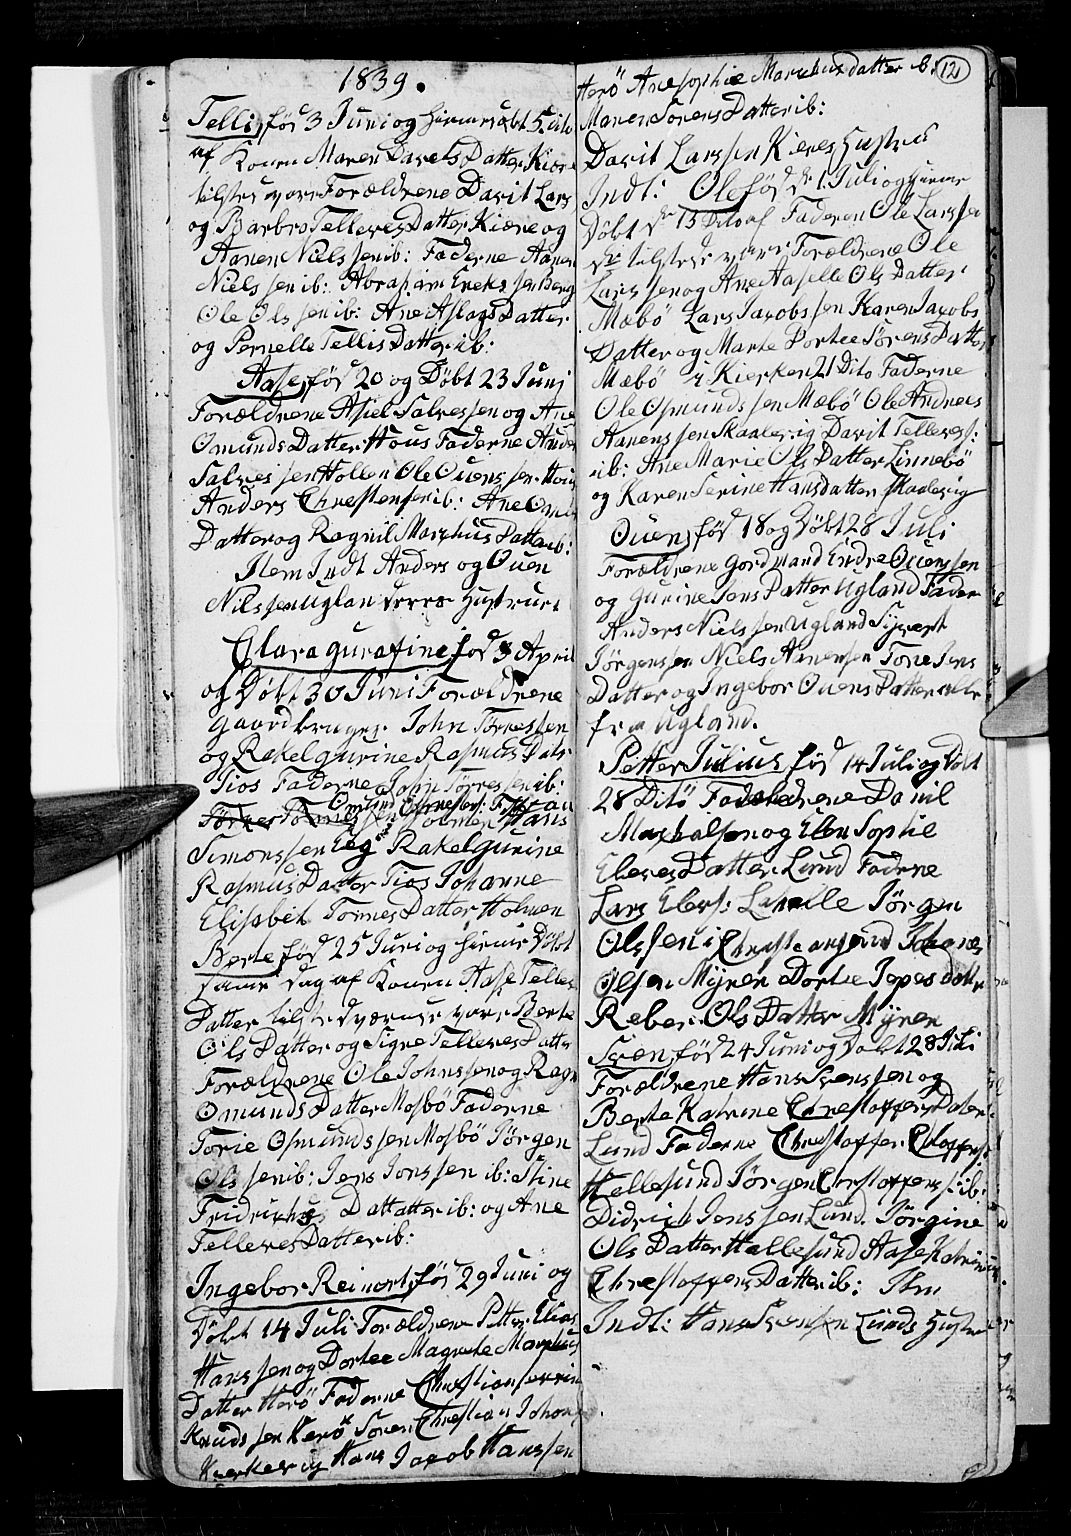 1839.
Tellis, föd 3 Juni og hiemedöbt 5 dito
af Konen Maren Davets Datter Kiære
tilstede vare Forældrene Davit Lars
og Barbro Telleves Datter Kiære og
Aanen Nielssen ib: Faderne Aanen
Nielssen ib: Abraham Erikssen Berg
Ole Olssen ib: Ane Aslags Datter
og Pernelle Tellis Datter ib:
Aase, föd 20 og Döbt 23 Juni
Forældrene Asiel Salvessen og Ane
Omunds Datter Hous Faderne Anders
Salvessen Hollen Ole Ouenssen Hous
Anders Chrestensen ib: Ane Om
Datter og Ragnil Marchus Datter ib:
Item Indt Anders og Ouen
Nilssen Uglan deres Hustruer
Clara Gurafine föd 3 April
og Döbt 30 Juni Forældrene
Gaardbruger John Törressen
og Rakel Gurine Rasmus Datr
Tios Faderne John Törressen ib:
Hans
Simonssen Eeg Rakel Gurine
Rasmus Datter Tios Johanne
Elisabet Tormes Datter Holmen
Berte föd 25 Juni og hieme Döbt
samme dag af Konen Aase Telles
Datter tilstedværende vare Berte
Ols Datter og Signe Telleves Datter
Forældrene Ole Johnssen og Ragn
Omunds Datter Mosbö Faderne
Torie Osmundssen Mosbö Jörgen
Olssen ib: Jens Jonssen ib: Stine
Fridrichs Dattatter ib: og Ane
Telleves Datter ib:
Ingebor Reinort, föd 29 Juni og
Döbt 14 Juli Forældrene Petter Elias
Hanssen og Dortee Magrete Marchus
Datter Herö Faderne Chrestian
Knudssen Herö Sören Chrestian Johan
Hans Jacob Hanssen
12
Herö Ane Sophie Marchus datter ib.
Maren Sörens Datter ib:
Davit Larssen Kieres Hustru
Indt: Ole föd d: 1 Juli og hieme
Döbt d: 13 Dito af Faderen Ole Larssen
de tilstede vare Forældrene Ole
Larssen og Ane Aaselle Ols Datter
Mæbö Lars Jacobssen Karen Jacobs
Datter og Marte Dortee Sörens Datter
Mæbö i Kierken 21 Dito Faderne
Ole Osmundssen Mæbö Ole Andreas
Aanenssen Skaalevig Davit Tellevs:
ib: Ane Marie Ols Datter Linnebö
og Karen Serine Hansdatter Skaalevig
Ouen, föd 18 og Döbt 28 Juli
Forældrene Gordmand Endre Ouenssen
og Gurine Jens Datter Ugland Fader
Anders Nielssen Ugland Sivert
Jörgenssen Niels Aanensen Tone Jens
Datter og Ingebor Ouens Datter alle
fra Ugland.
Petter Julius föd 14 Juli og Döbt
28 Ditö Forældrene Danil
og Elen Sophie
Eleves Datter Lund Faderne
Lars Elevs: Lahelle Jörgen
Olssen i Chrestiansand Johanes
Olsen Myren Dortee Jepes datter
Reber Ols Datter Myren
Sven, föd 24 Juni og Döbt 28 Juli
Forældrene Hans Svenssen og
Berte Katrine Chrestoffers Dater
Lund Faderne Chrestoffer
Hellesund Jörgen Chrestoffers: ib:
Didrich Jenssen Lund. Jörgine
Ols Datter Hallesund Aase Katrine
Chrestoffers Datter ib: Item
Indt: Hans Svensen Lunds Hustru